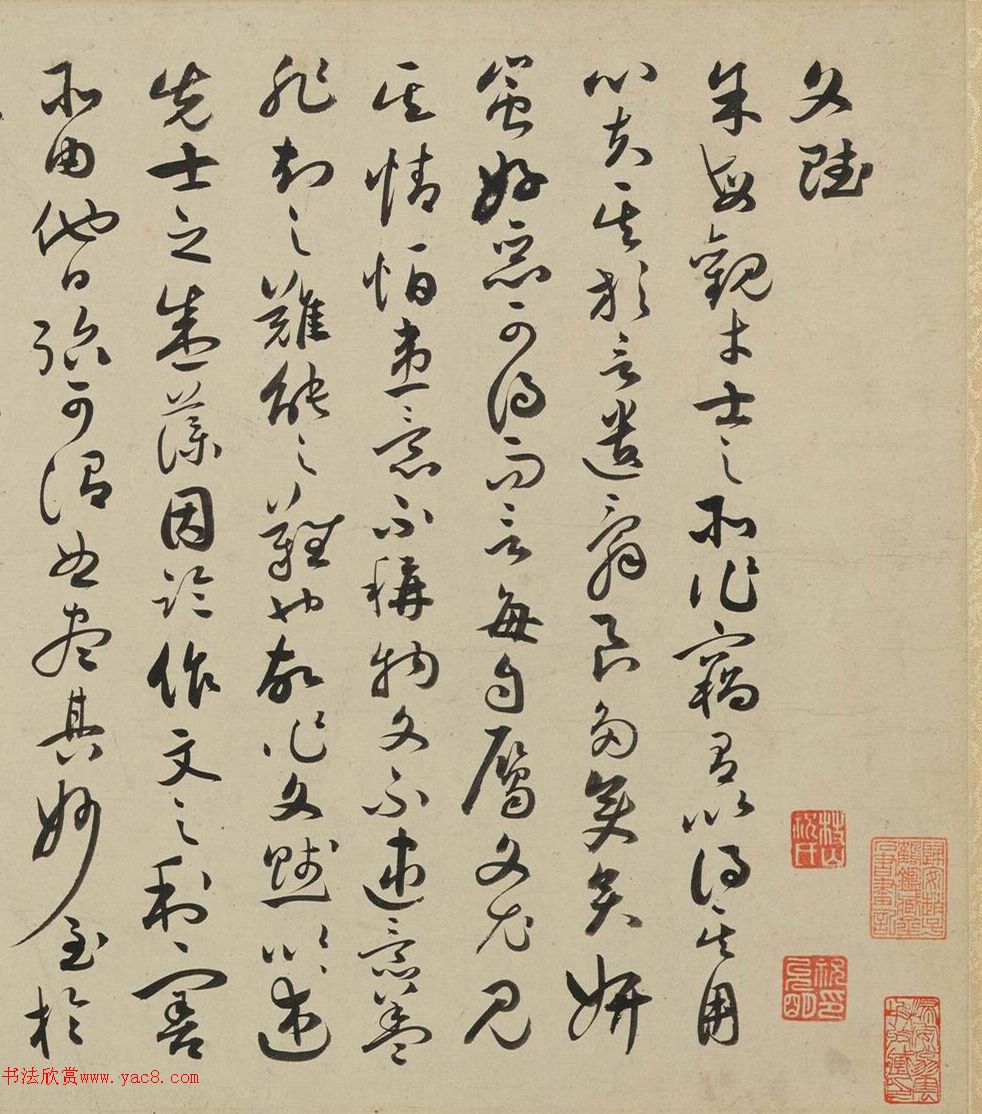 文賦
余每觀才士之所作竊有以得其用
心夫其放言遣辭良多變矣妍
蚩好惡可得而言每自屬文尤見
其情恒患意不稱物文不逮意蓋
非知之難能之難也故作文賦以述
先士之盛藻因論作文之利害
所由他日殆可謂曲盡其妙至於
書法欣赏www.yac8.com